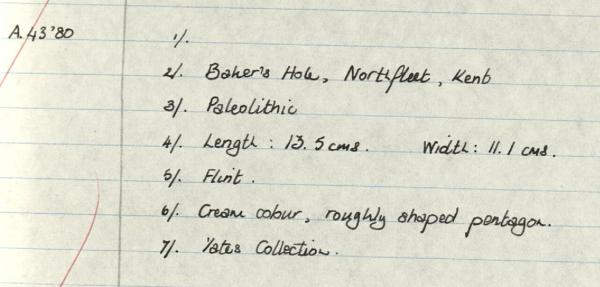 A.43'80 1/.
2/. Baker's Hole, Northfleet, Kent
3/. Paleolithic
4/. Length : 13.5 cms. Width : 11.1 cms.
5/. Flint.
6/. Cream colour, roughly shaped pentagon.
7/. Yates Collection.